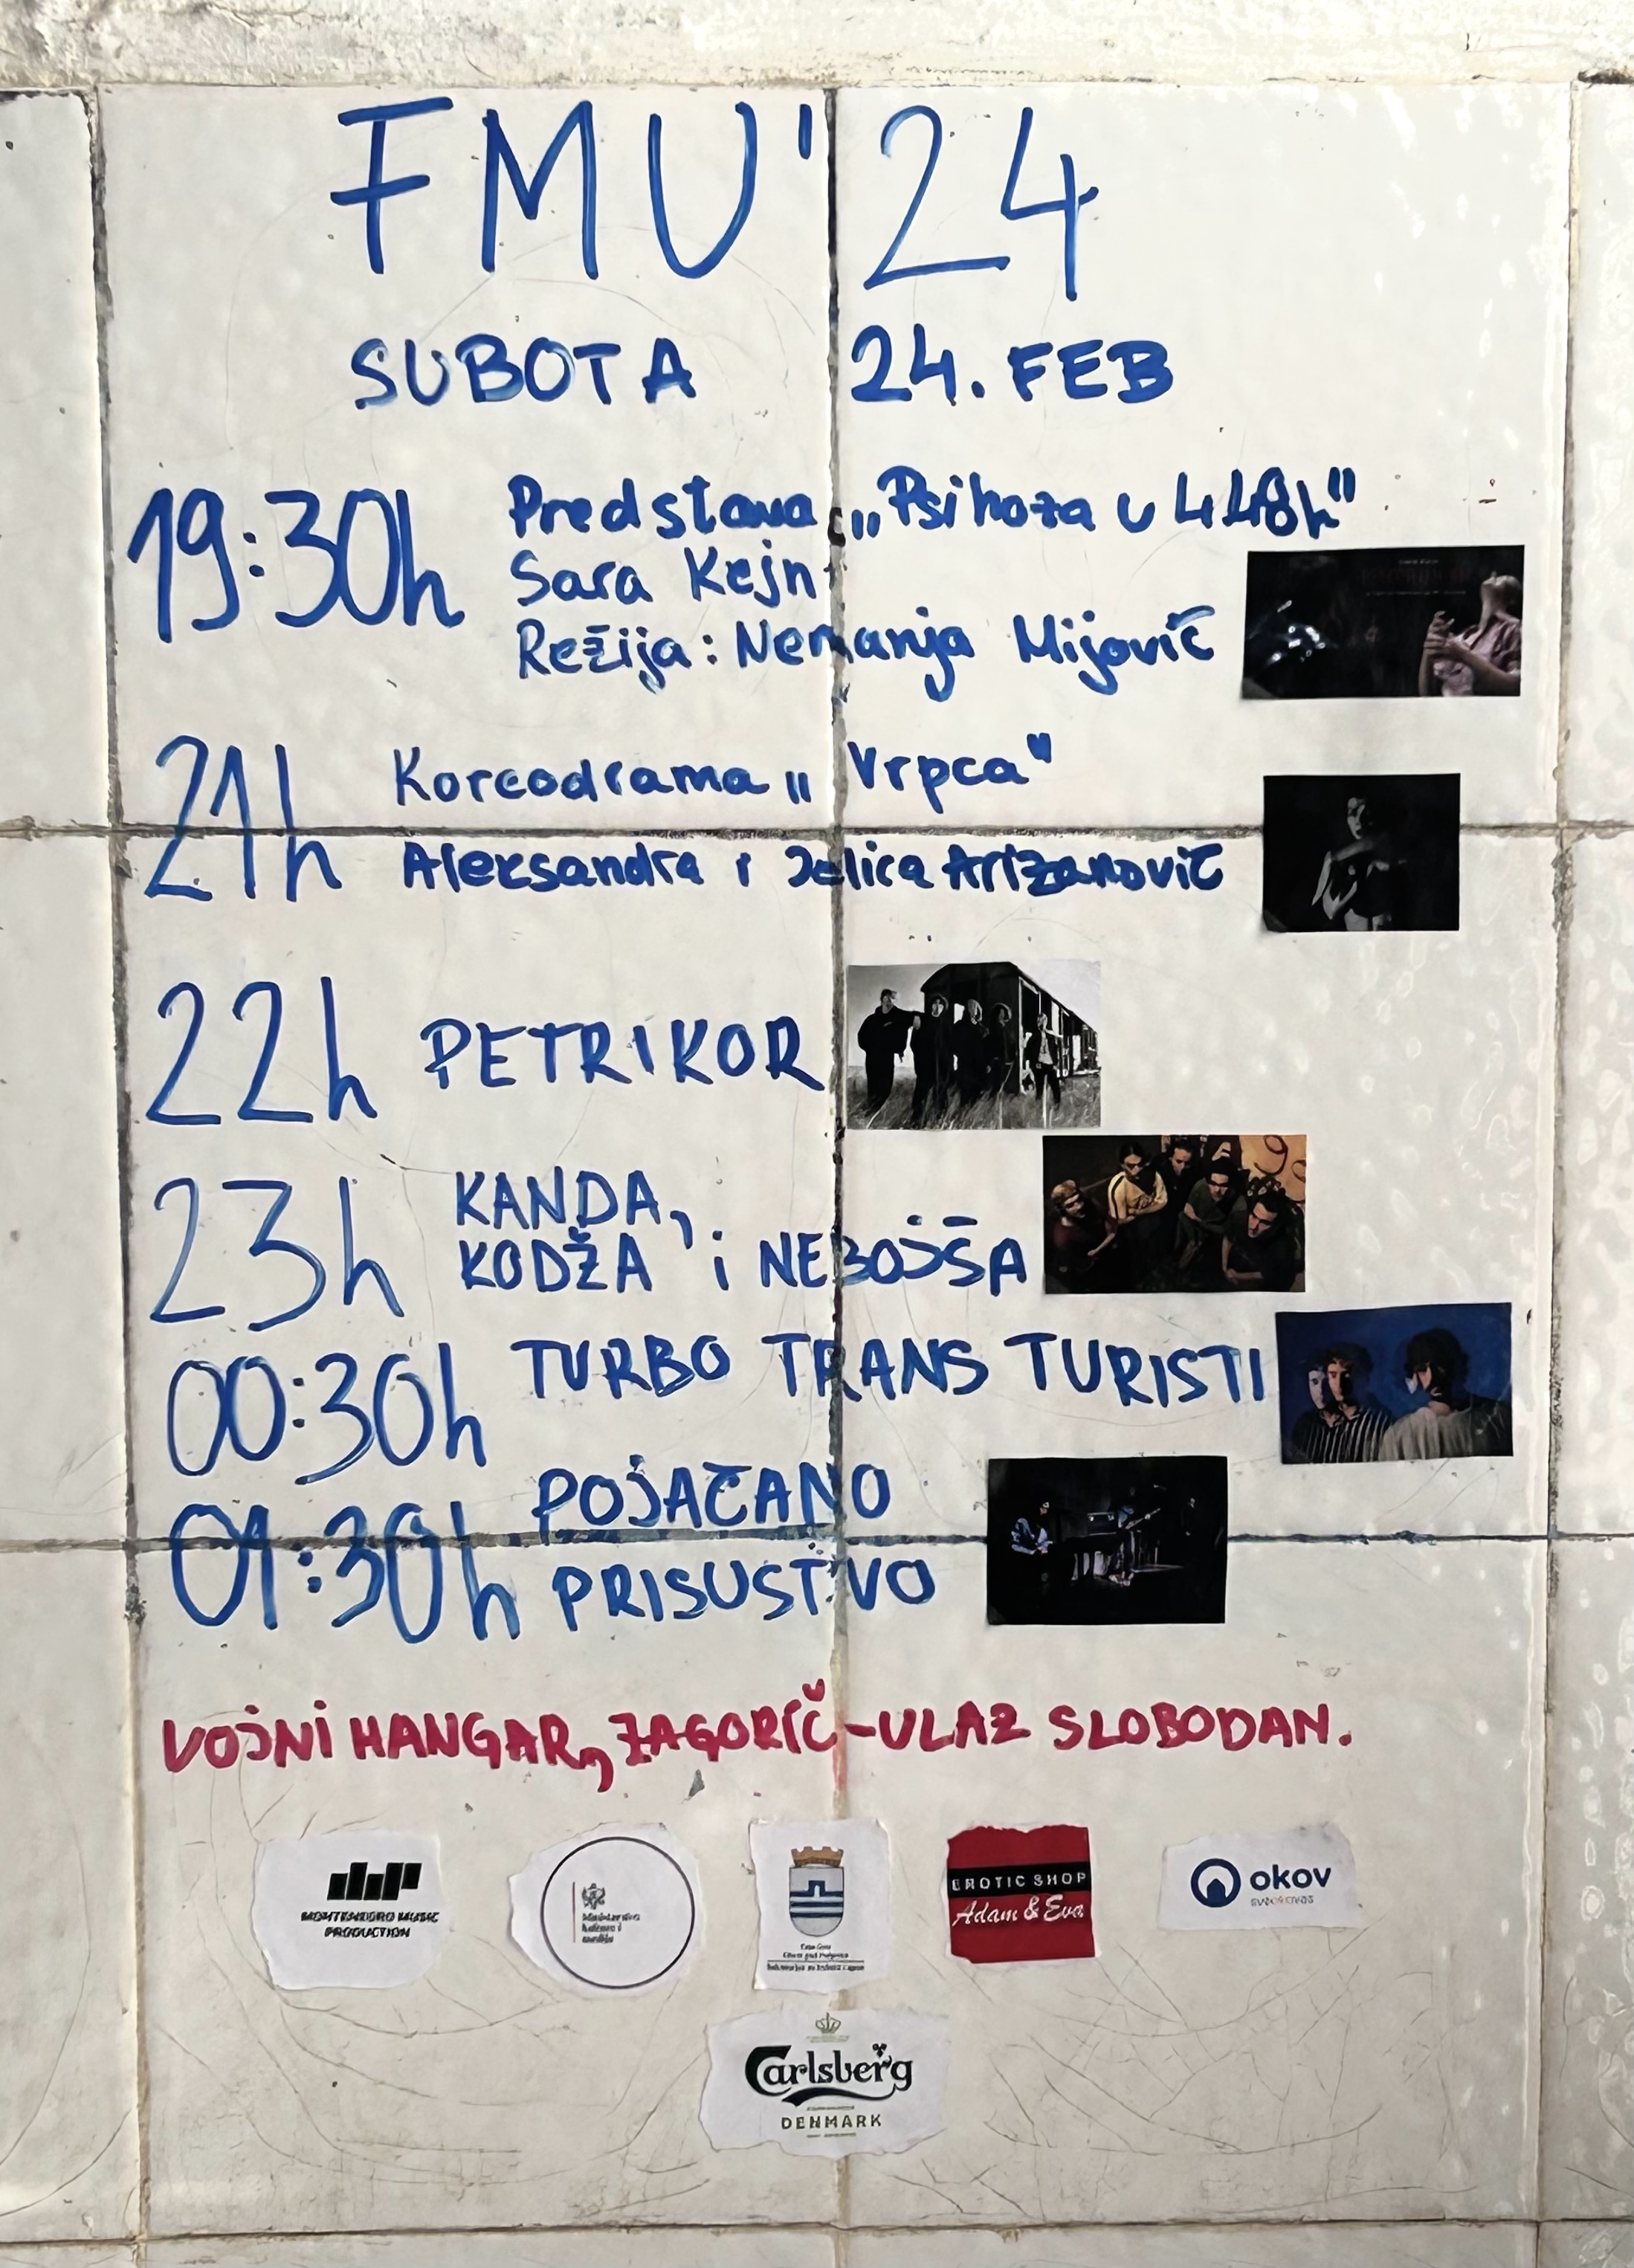 FMU'24
SUBOTA 24. FEB
19:30h Predstava „Psihoza u 4:48h"
Sara Kejn
Režija: Nemanja Mijović
21h Koreodrama „Vrpca"
Aleksandra i Jelica Arizanović
22h PETRIKOR
23h KANDA,
KODŽA i NEBOJŠA
00:30h TURBO TRANS TURISTI
01:30h POJAČANO
PRISUSTVO
VOJNI HANGAR, ZAGORIČ-ULAZ SLOBODAN.
MONTENEGRO MUSIC
PRODUCTION
Ministarstvo
kulture i
medija
Crna Gora
Glavni grad Podgorica
EROTIC SHOP
Adam & Eva
okov
Carlsberg
DENMARK